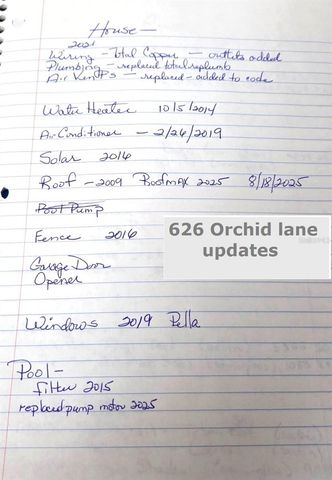 House -
2021
Wiring - Total Copper - outlets added
Plumbing - replaced total replumb
Air Vents - replaced - added to code
Water Heater 10/5/2014
Air Conditioner - 2/26/2019
Solar 2016
Roof - 2009 Roofmax 2025 8/18/2025
Pool Pump
Fence 2016
626 Orchid lane
updates
Garage Door
Opener
Windows 2019 Pella
Pool -
filter 2015
replaced pump motor 2025